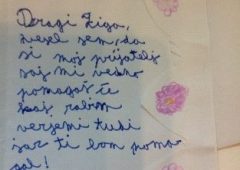 Dragi Žiga,
vesel sem, da
si moj prijatelj
saj mi vedno
pomagaš če
kaj rabim
verjemi tudi
jaz ti bom poma
gal!